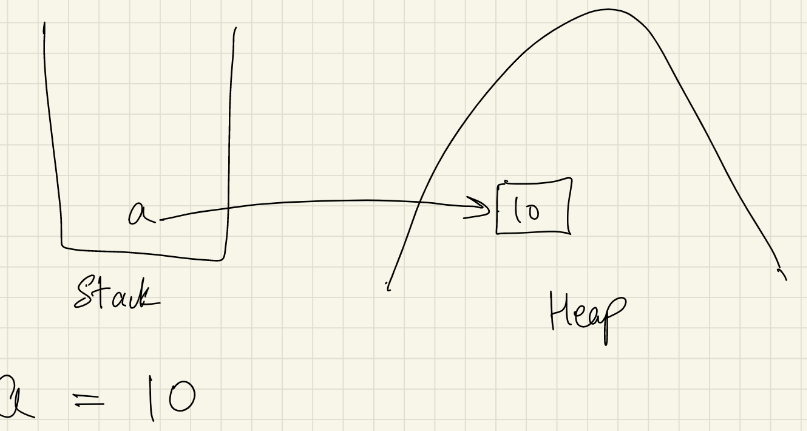 a
10
Stack
Heap
a = 10